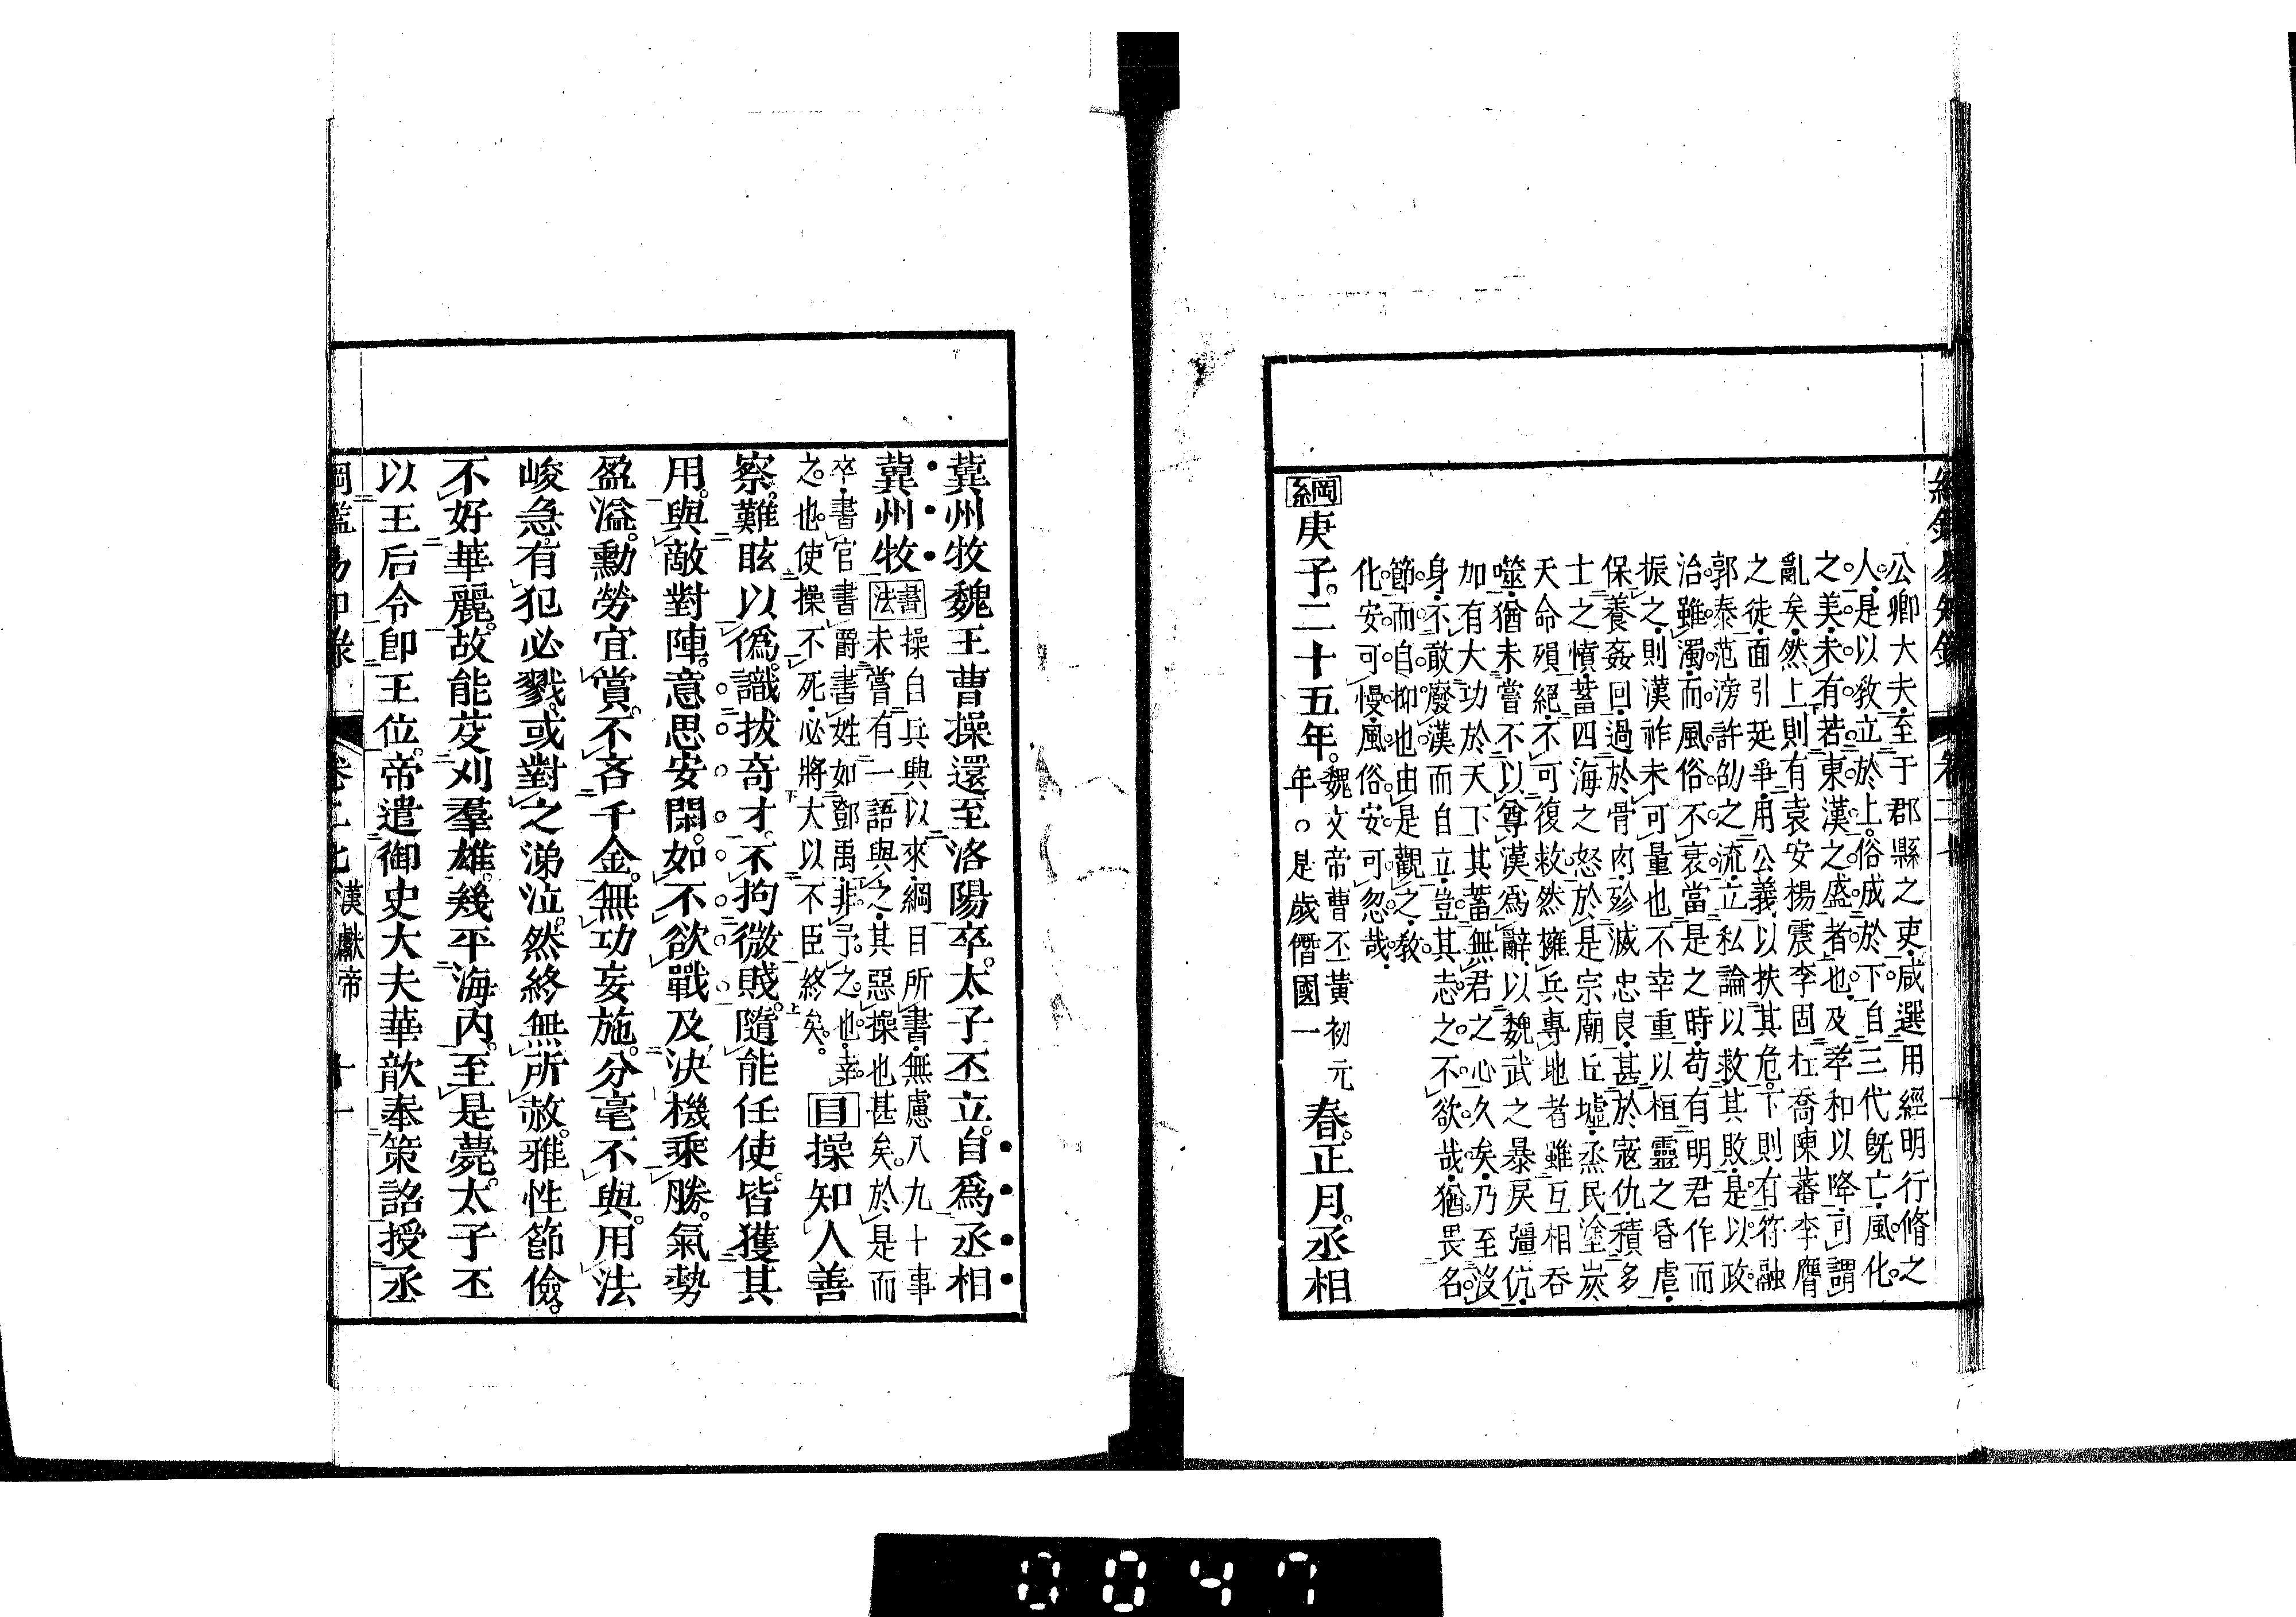 公卿大夫至于郡縣之吏咸選用經明行脩之
人是以教立於上俗成於下自三代既亡風化
之美未有若東漢之盛者也及孝和以降可謂
亂矣然上則有袁安楊震李固杜喬陳蕃李膺
之徒面引廷爭用公義以扶其危下則有符融
郭泰范滂許劭之流立私論以救其敗是以政
治雖濁而風俗不衰當是之時苟有明君作而
振之則漢祚未可量也不幸重以桓靈之昏虐
保養姦回過於骨肉殄滅忠良甚於寇仇積多
士之憤蓄四海之怒於是宗廟丘墟烝民塗炭
天命殞絕不可復救然擁兵專地者雖互相吞
噬猶未嘗不以尊漢爲辭以魏武之暴戾彊伉
加有大功於天下其蓄無君之心久矣乃至沒
身不敢廢漢而自立豈其志之不欲哉猶畏名
節而自抑也由是觀之教
化安可慢風俗安可忽哉
綱庚子二十五年
魏文帝曹丕黃初元
年○是歲僭國一
春正月丞相
冀州牧魏王曹操還至洛陽卒太子丕立自爲丞相
冀州牧
書法
操自兵興以來綱目所書無慮八九十事
未嘗有一語與之其惡操也甚矣於是而
卒書官書爵書姓如鄧禹非予之也幸
之也使操不死必將大以不臣終矣
目操知人善
察難眩以僞識拔奇才不拘微賤隨能任使皆獲其
用與敵對陣意思安閑如不欲戰及決機乘勝氣勢
盈溢勳勞宜賞不吝千金無功妄施分毫不與用法
峻急有犯必戮或對之涕泣然終無所赦雅性節儉
不好華麗故能芟刈羣雄幾平海內至是薨太子丕
以王后令卽王位帝遣御史大夫華歆奉策詔授丞
漢獻帝
十一
0047